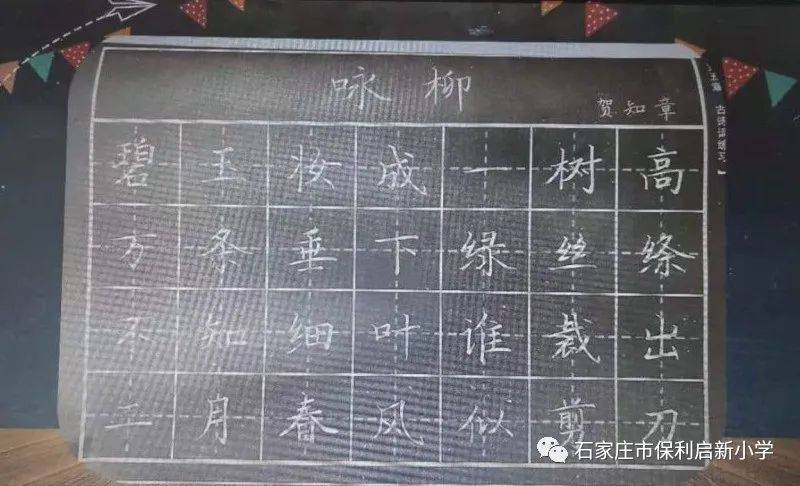 咏柳
贺知章
碧玉妆成一树高
万条垂下绿丝绦
不知细叶谁裁出
二月春风似剪刀
古诗词练习】
石家庄市保利启新小学